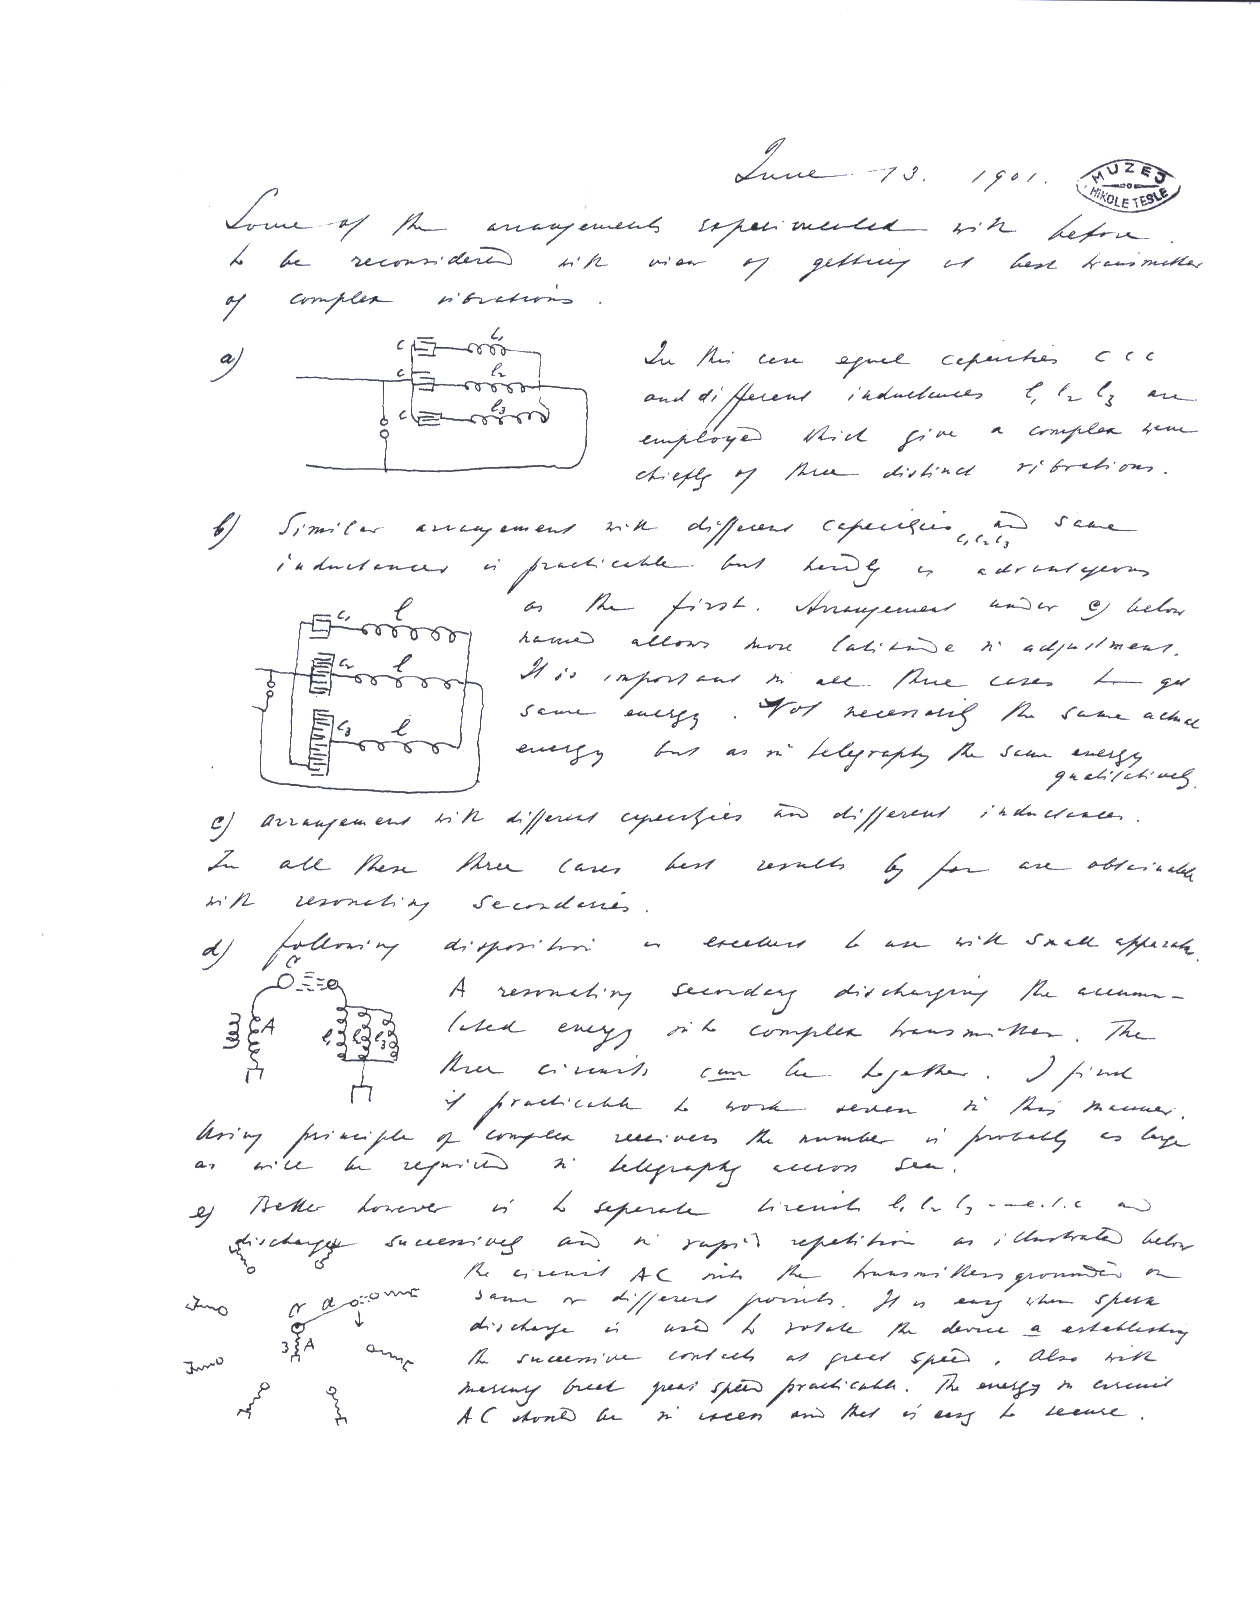 June 13. 1901.
MUZEJ
NIKOLE TESLE
Some of the arrangements experimented with before
to be reconsidered with view of getting at best transmitter
of complex vibrations.
a)
c l1
c l2
c l3
In this case equal capacities c c c
and different inductances l1 l2 l3 are
employed which give a complex wave
chiefly of three distinct vibrations.
b) Similar arrangement with different capacities c1 c2 c3 and same
inductances is practicable but hardly as advantageous
as the first. Arrangement under c) below
named allows more latitude in adjustment.
It is important in all three cases to get
same energy. Not necessarily the same actual
energy but as in telegraphy the same energy
qualitatively.
c1 l
c2 l
c3 l
c) arrangement with different capacities and different inductances.
In all these three cases best results by far are obtainable
with resonating secondaries.
d) following disposition is excellent to use with small apparatus.
C
A l1 l2 l3
A resonating secondary discharging the accumu-
lated energy into complex transmitter. The
three circuits can be together. I find
it practicable to work seven in this manner.
Using principle of complex receivers the number is probably as large
as will be required in telegraphy across sea.
e) Better however is to separate circuits l1 l2 l3 - - e.t.c and
discharge successively and in rapid repetition as illustrated below
the circuit AC into the transmitters grounded on
same or different points. It is easy when spark
discharge is used to rotate the device a establishing
the successive contacts at great speed. Also with
mercury break great speed practicable. The energy in circuit
AC should be in excess and that is easy to secure.
C a
A